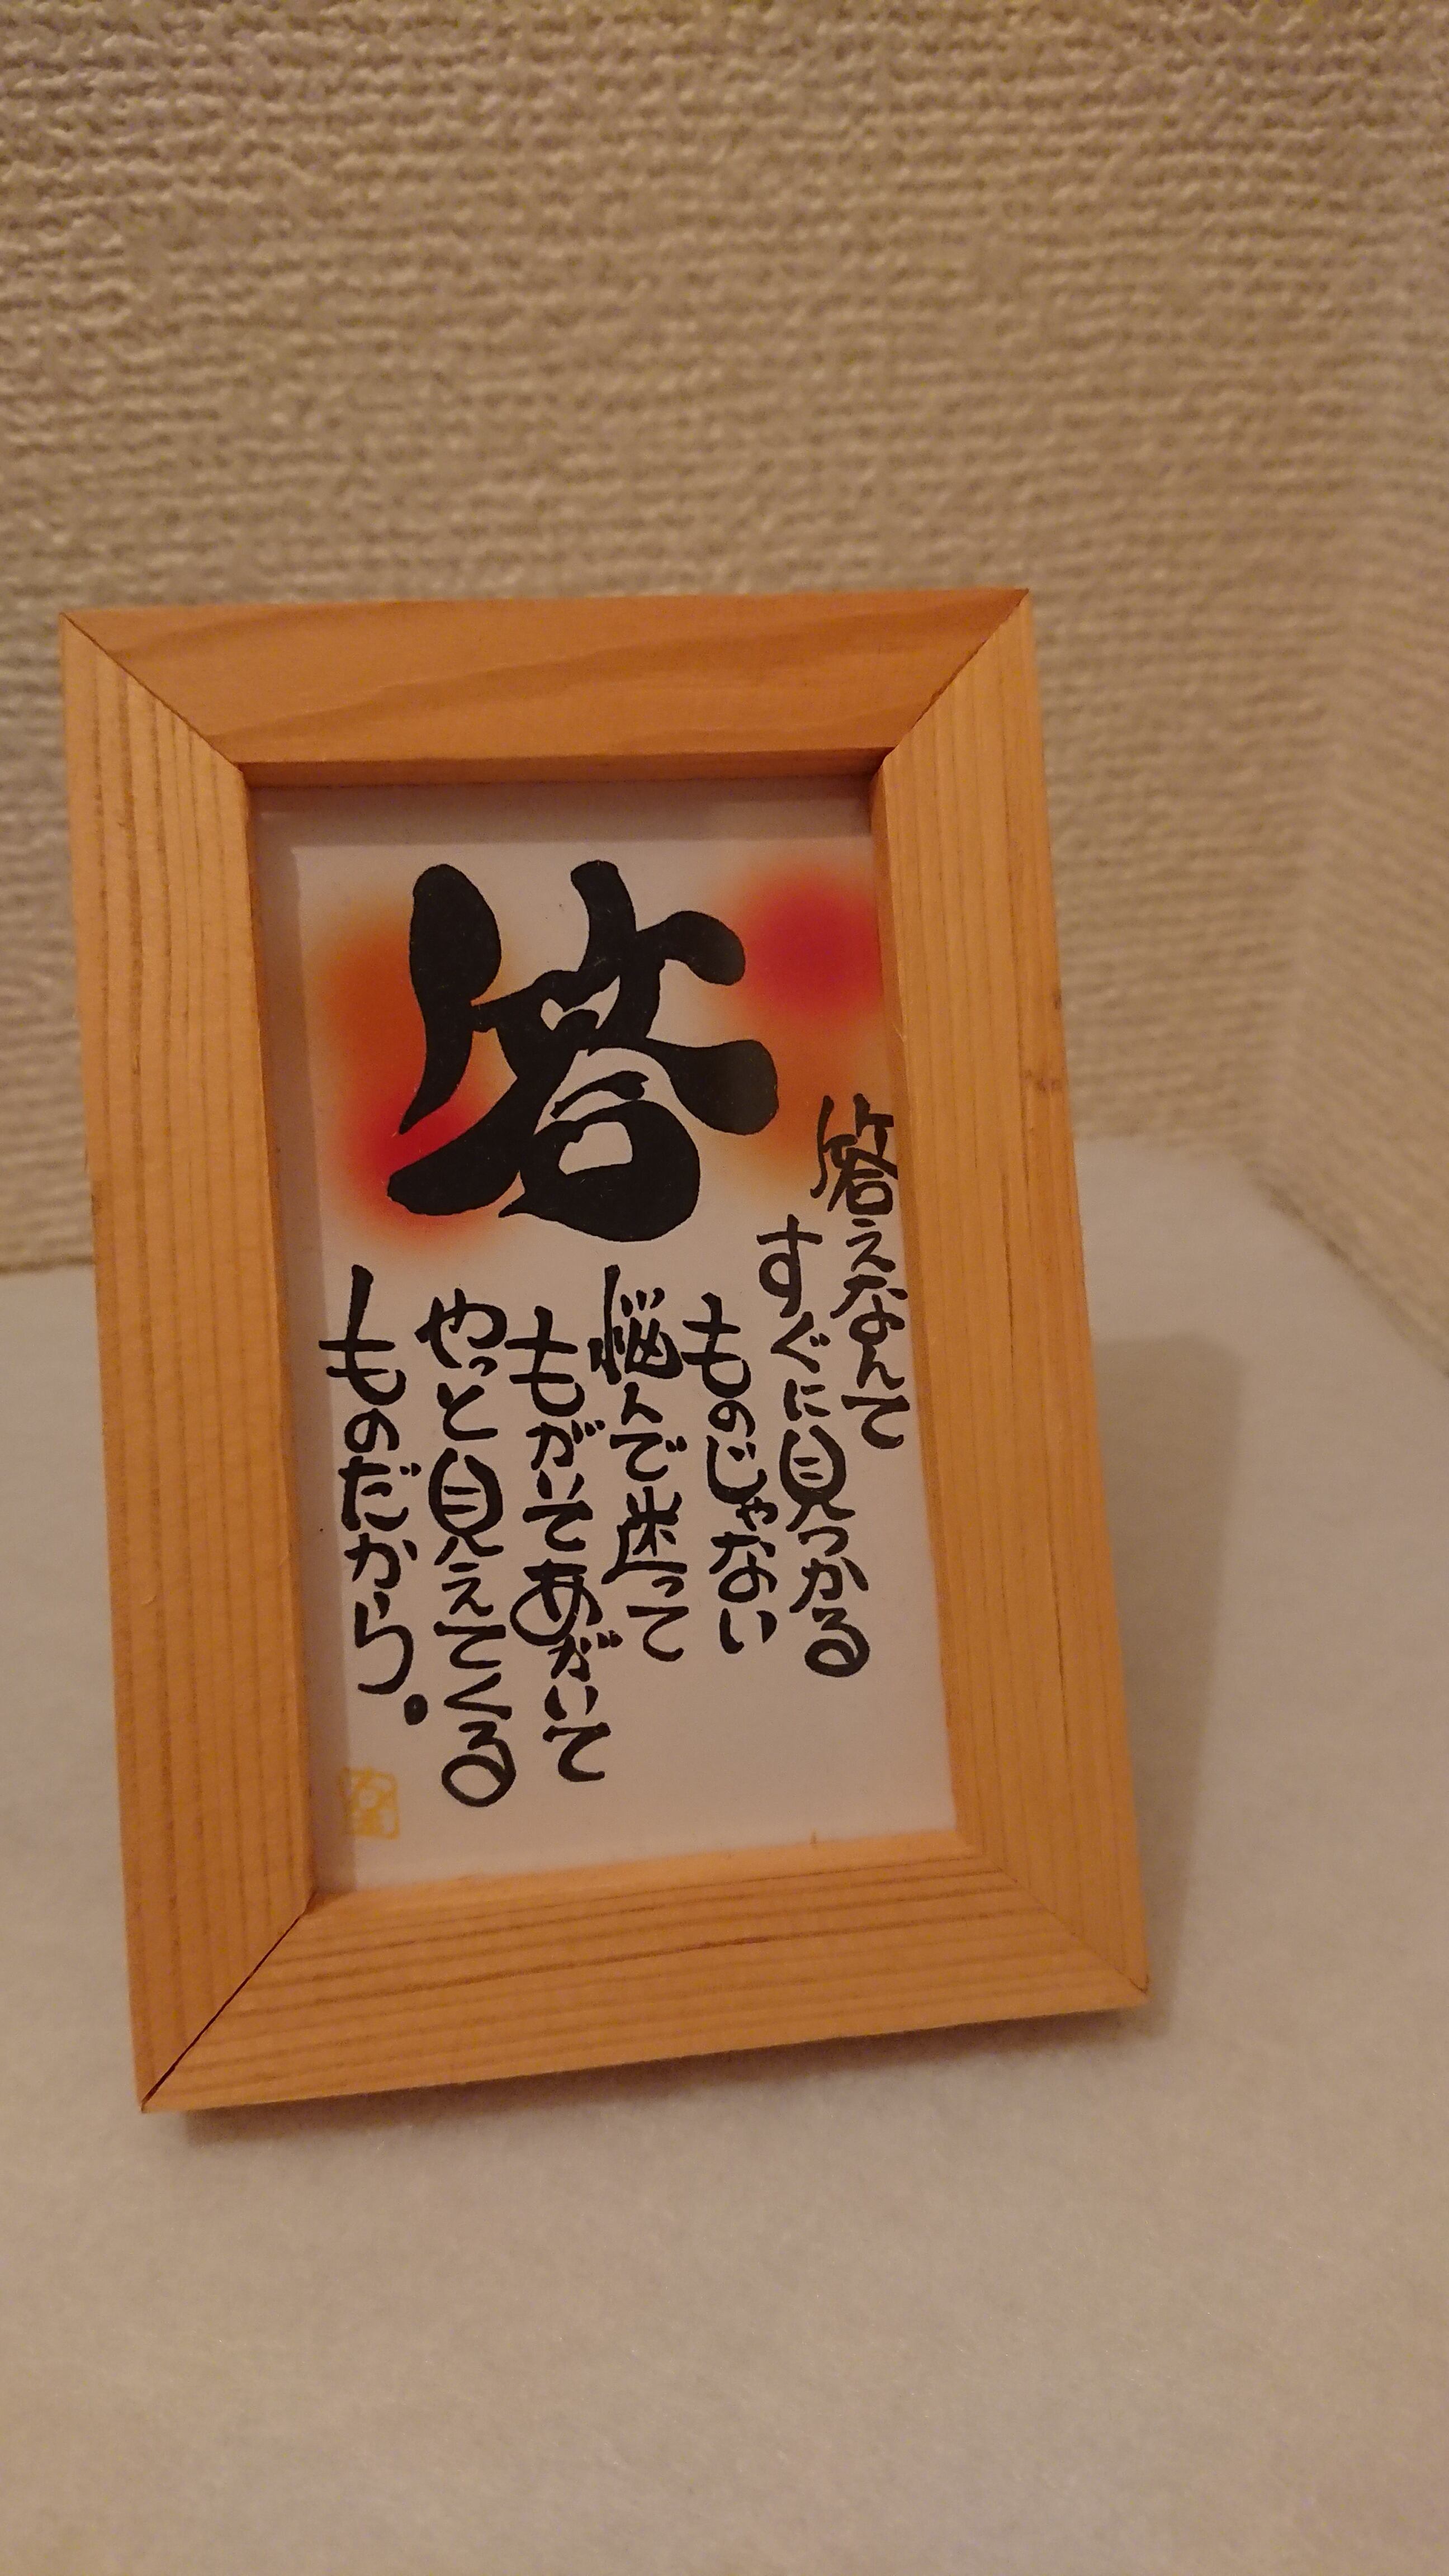 答
答えなんて
すぐに見つかる
ものじゃない
悩んで迷って
もがいてあがいて
やっと見えてくる
ものだから。